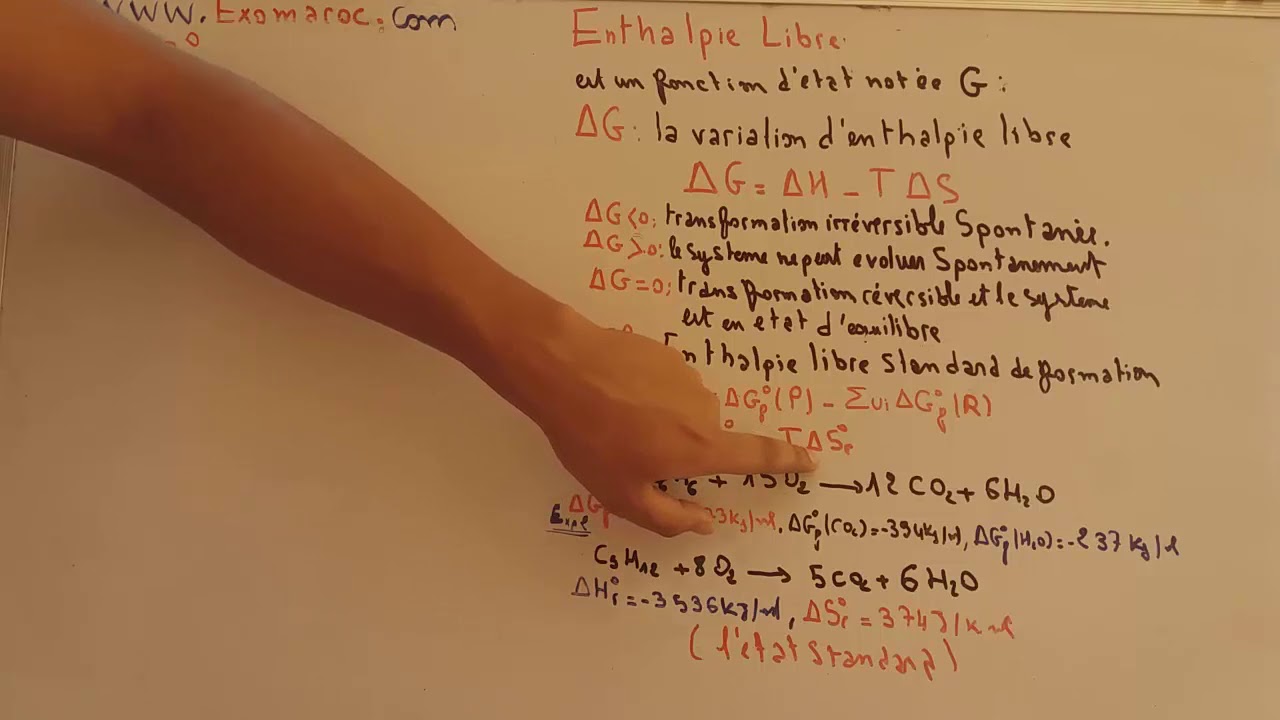 WWW.Exomaroc.com
Enthalpie Libre.
est un fonction d'état notée G:
ΔG: la variation d'enthalpie libre
ΔG = ΔH - T ΔS
ΔG<0; transformation irréversible Spontanée.
ΔG>0: le système ne peut evoluer Spontanement
ΔG=0; transformation réversible et le système
est en etat d'équilibre
Enthalpie libre Standard de formation
ΔG°f(P) - Σνi ΔG°f(R)
TΔS°r
+ 15O₂ → 12CO₂ + 6H₂O
Expl
kJ/mol, ΔG°f(CO₂)=-394kJ/mol, ΔG°f(H₂O)=-237kJ/mol
C₅H₁₂ + 8O₂ → 5CO₂ + 6H₂O
ΔH°r=-3536kJ/mol, ΔS°r = 374J/K mol
(l'état Standard)